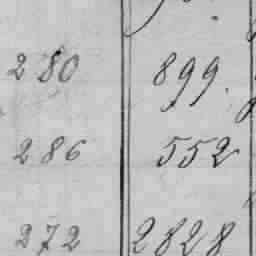 280 899.
286 552
272 2828